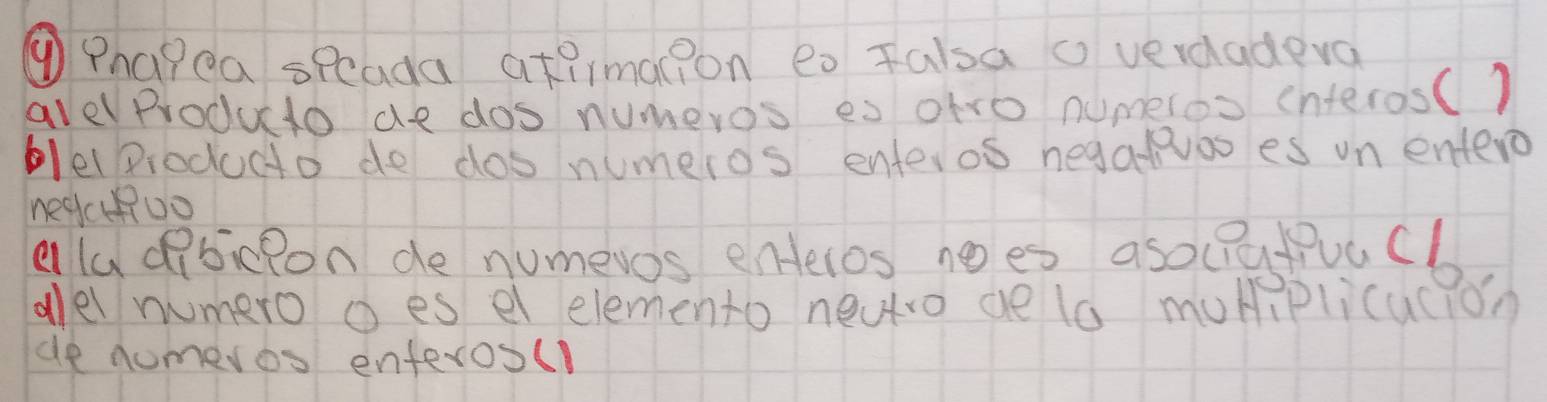 ④ inaica si cada afirmacion es falsa o verdadera
a) el Producto de dos numeros es otro numeros enteros ( )
b) el Producto de dos numeros enteros negativos es un entero
negativo
c) la dibicion de numeros enteros no es asociativa ( )
d) el numero 0 es el elemento neutro de la multiplicación
de numeros enteros ( )